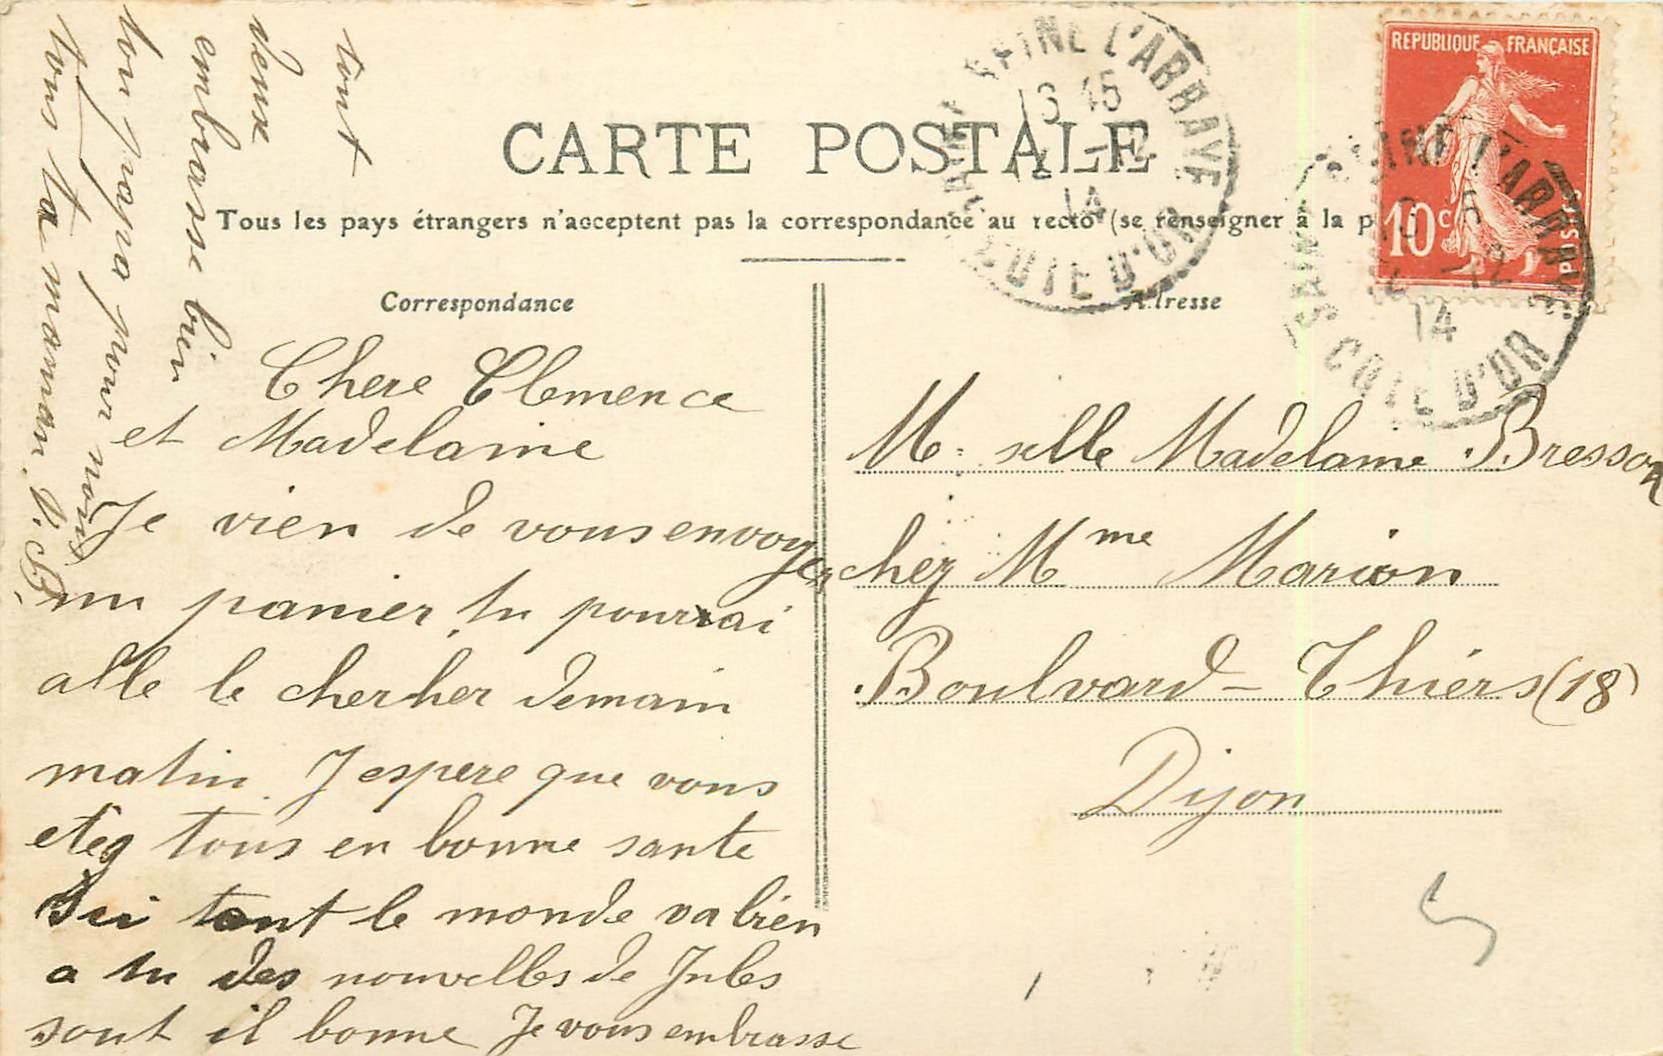 CARTE POSTALE
Tous les pays étrangers n'acceptent pas la correspondance au recto (se renseigner à la p
Correspondance
Adresse
REPUBLIQUE FRANÇAISE
10c
POSTES
SAINT SEINE L'ABBAYE
13 45
12
14
COTE D'OR
SAINT SEINE L'ABBAYE
12
14
COTE D'OR
Chere Clemence
et Madelaine
Je vien de vous envoyer
un panier, tu pourrai
alle le chercher demain
matin. J espere que vous
etes tous en bonne sante
Ici tout le monde va bien
a tu des nouvelles de Jules
sont il bonne Je vous embrasse
tout
deux
embrasse bien
ton papa pour nous
tous ta maman. V. B.
M. selle Madelaine Bresson
chez Mme Marion
Boulvard - Thiérs (18)
Dijon
5